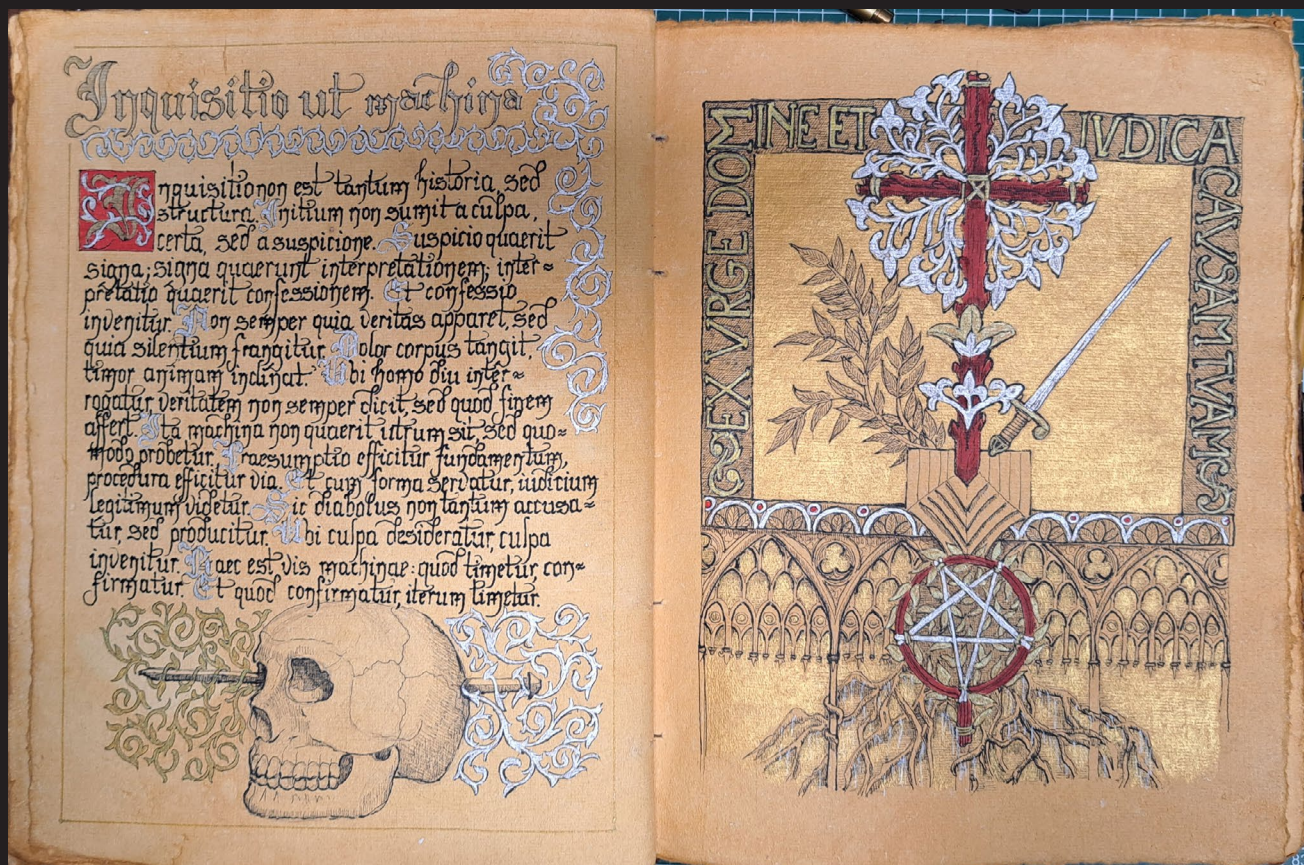 Inquisitio ut machina
Inquisitio non est tantum historia, sed
structura. Initium non sumit a culpa,
certa, sed a suspicione. Suspicio quaerit
signa; signa quaerunt interpretationem; inter=
pretatio quaerit confessionem. Et confessio
invenitur. Non semper quia veritas apparet, sed
quia silentium frangitur. Dolor corpus tangit,
timor animam inclinat. Ubi homo diu inter=
rogatur, veritatem non semper dicit, sed quod finem
affert. Ita machina non quaerit utrum sit, sed quo=
modo probetur. Praesumptio efficitur fundamentum,
procedura efficitur via. Et cum forma servatur, iudicium
legitimum videtur. Sic diabolus non tantum accusa=
tur, sed producitur. Ubi culpa desideratur, culpa
invenitur. Haec est vis machinae: quod timetur con=
firmatur. Et quod confirmatur, iterum timetur.
EX VRGE DOMINE ET IVDICA CAVSAM TVAM